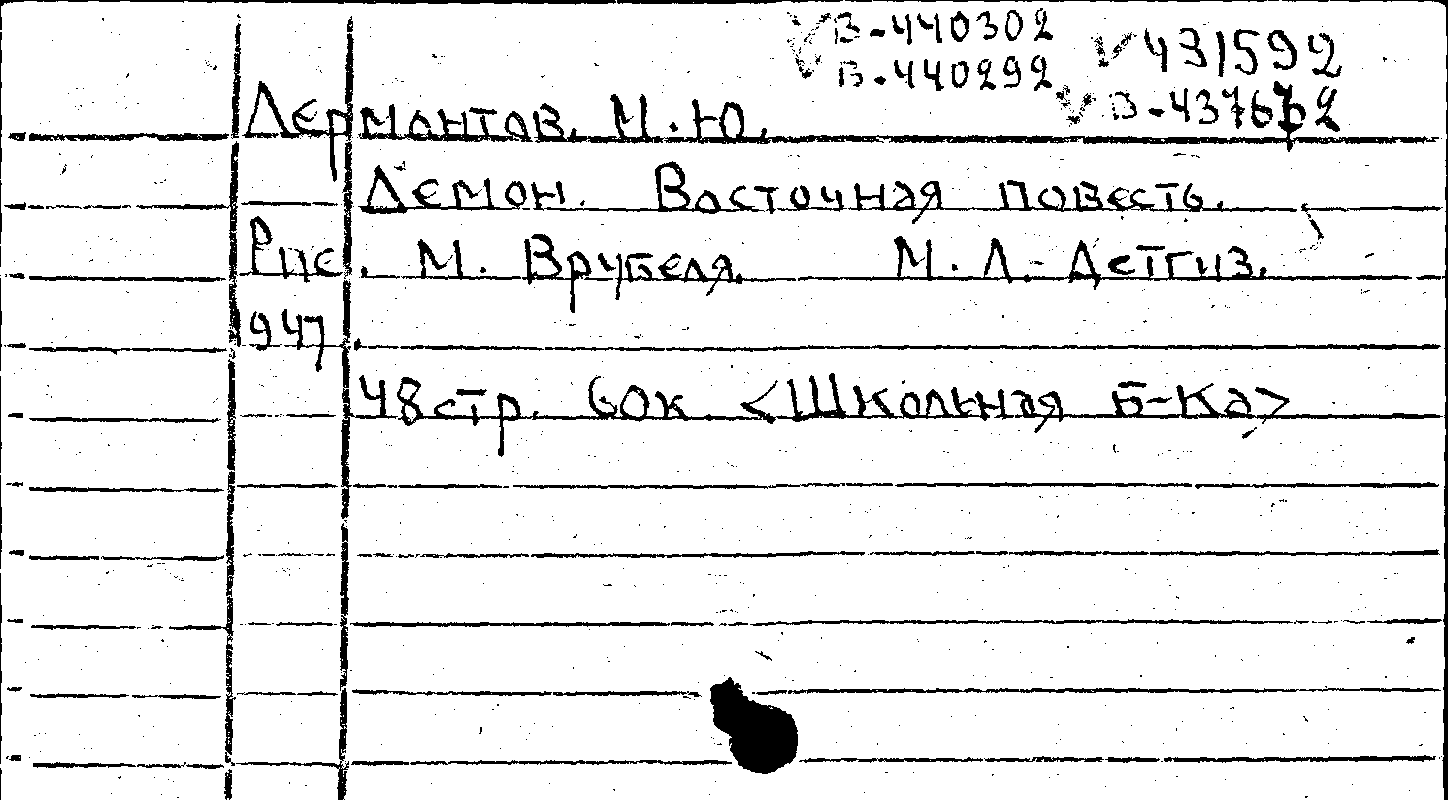 В-440302
431592
В-440292
В-437672
Лермонтов. М.Ю.
Демон. Восточная повесть.
Рис. М. Врубеля. М.Л.- Детгиз.
1947.
48стр. 60к. <Школьная б-ка>